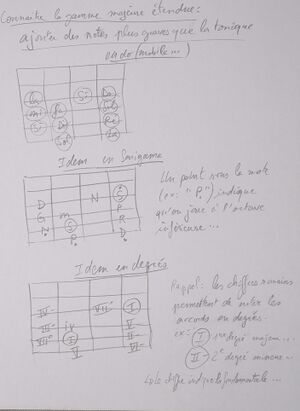 Connaitre la gamme majeure étendue:
ajouter des notes plus graves que la tonique
en do (mobile...)
La Si Do
mi Fa Sol
Si Do Ré
Sol La
Idem en Sarigama
D N S
G m P
N S R
P D
Un point sous la note
(ex: "P") indique
qu'on joue à l'octave
inférieure...
Idem en degrés
IV VII I
III IV V
VII I II
V VI
Rappel: les chiffres romains
permettent de noter les
accords en degrés.
ex: I 1er degré majeur...
II 2e degré mineur...
Le chiffre indique la fondamentale...